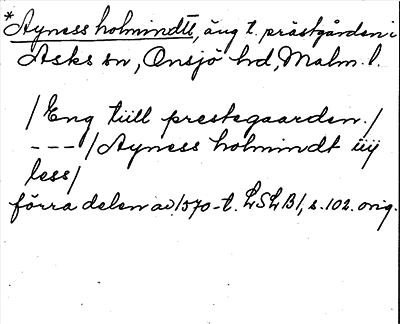 *Ayness holmindtt, äng t. prästgården i
Asks sn, Onsjö hd, Malm. l.
/Eng tiill prestegaarden./
---/Ayness holmindt iiÿ
less/
förra delen av 1570-t. LSLB1, s. 102. orig.